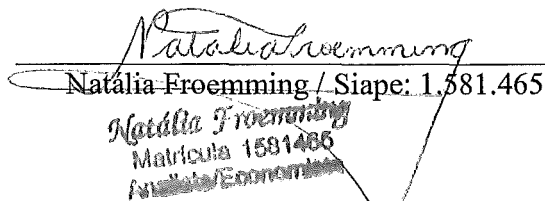 Natalia Froemming
Natália Froemming / Siape: 1.581.465
Natália Froemming
Matrícula 1581465
Analista/Economista